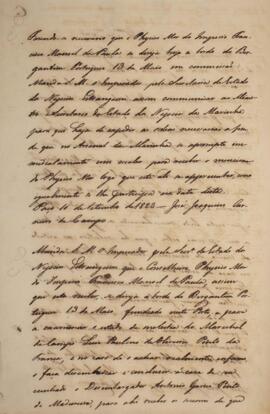 Fazendo-se necessario que o Physico Mor do Imperio Fran-
cisco Manoel de Paula se dirija hoje a bordo do Ber-
gantim Portuguez 13 de Maio em commissão:
Manda S. M. o Imperador pela Secretaria de Estado
do Negocios Estrangeiros assim communicar ao Mi-
nistro Secretario de Estado do Negocios da Marinha
para que haja de expedir as ordens necessarias a fim
de que no Arsenal da Marinha se aprompte im-
mediatamente um escaler para receber o mencionado
Physico Mor logo que este alli se apresentar, como
igualmente se lhe participa na data desta.
Paço 11 de Setembro de 1823 - José Joaquim Car-
neiro de Campos.
Manda S. M. O Imperador pela Secr.ª de Estado do
Negocios Estrangeiros que o Conselheiro Physico Mor
do Imperio Francisco Manoel de Paula, assim
que este receber, se dirija a bordo do Bergantim Por-
tuguez 13 de Maio fundeado neste Porto, e passe
a examinar o estado de molestia do Marechal
de Campo Luiz Paulino de Oliveira Pinto da
França, e no caso de o achar realmente enfermo,
o faça desembarcar e conduzir á casa de
o Desembargador Antonio Garcez Pinto
de Madureira, para ahi receber os socorros de que